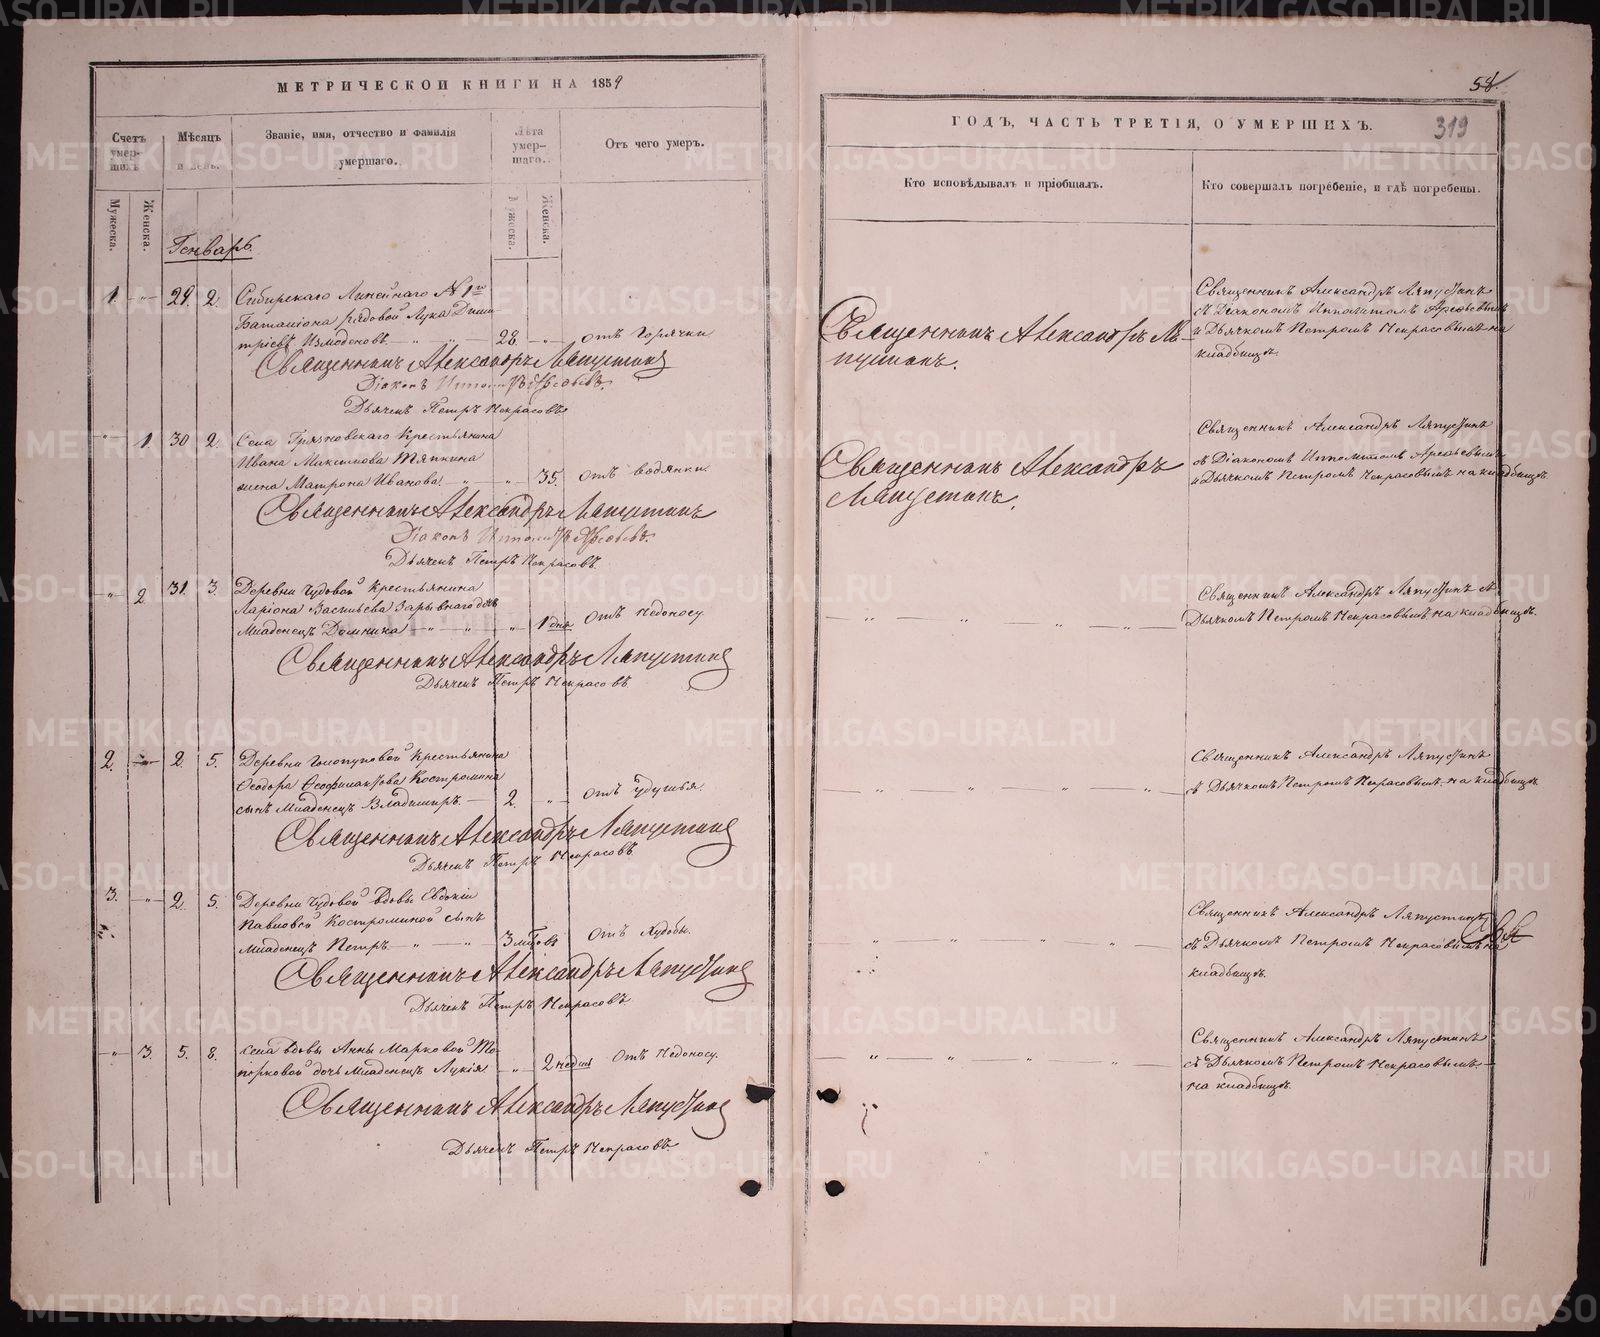 МЕТРИЧЕСКОЙ КНИГИ НА 1859
Счетъ умер-шихъ
Мѣсяцъ и день.
Званіе, имя, отчество и фамилія умершаго.
Лѣта умер-шаго.
Отъ чего умеръ.
Мужеска.
Женска.
Мужеска.
Женска.
Генварь.
1. „ 29. 2. Сибирскаго Линейнаго № 1го
Баталіона рядовой Лука Дими
тріевъ 28. „ отъ Горячки
Священникъ Александръ Ляпустинъ
Діаконъ Ипполитъ Арефьевъ.
Дьячекъ Петръ Некрасовъ
„ 1. 30 2. Села Грязновскаго Крестьянина
Ивана Максимова Тяпкина
жена Матрона Иванова. „ 35. отъ водянки.
Священникъ Александръ Ляпустинъ
Діаконъ Ипполитъ Арефьевъ.
Дьячекъ Петръ Некрасовъ.
„ 2 31. 3. Деревни Чудовой Крестьянина
Ларіона Васильева дочь
Младенецъ Домника „ „ „ 1 дня отъ Недоносу.
Священникъ Александръ Ляпустинъ
Дьячекъ Петръ Некрасовъ
2. „ 2. 5. Деревни Голопуповой Крестьянина
Ѳеодора Ѳеофилактова Костромина
сынъ Младенецъ Владиміръ. 2. „ отъ Удушья.
Священникъ Александръ Ляпустинъ
Дьячекъ Петръ Некрасовъ
3. „ 2. 5. Деревни Чудовой вдовы Евдокіи
Павловой Костроминой сынъ
Младенецъ Петръ „ „ 3 мѣсовъ отъ Худобы.
Священникъ Александръ Ляпустинъ
Дьячекъ Петръ Некрасовъ
„ 3. 5. 8. села вдовы Анны Марковой То-
порковой дочь Младенецъ Лукія „ 2 недѣли отъ Недоносу.
Священникъ Александръ Ляпустинъ
Дьячекъ Петръ Некрасовъ.
58.
319
ГОДЪ, ЧАСТЬ ТРЕТІЯ, О УМЕРШИХЪ.
Кто исповѣдывалъ и пріобщалъ.
Кто совершалъ погребеніе, и гдѣ погребены.
Священникъ Александръ Ля-
пустинъ.
Священникъ Александръ Ляпустинъ
съ Діакономъ Ипполитомъ Арефьевымъ
и Дьячкомъ Петромъ Некрасовымъ на
кладбищѣ.
Священникъ Александръ
Ляпустинъ.
Священникъ Александръ Ляпустинъ
съ Діакономъ Ипполитомъ Арефьевымъ
и Дьячкомъ Петромъ Некрасовымъ на кладбищѣ.
„ „ „ „
Священникъ Александръ Ляпустинъ съ
Дьячкомъ Петромъ Некрасовымъ на кладбищѣ.
„ „ „ „
Священникъ Александръ Ляпустинъ
съ Дьячкомъ Петромъ Некрасовымъ на кладбищѣ.
„ „ „ „
Священникъ Александръ Ляпустинъ
съ Дьячкомъ Петромъ Некрасовымъ на
кладбищѣ.
„ „ „ „
Священникъ Александръ Ляпустинъ
съ Дьячкомъ Петромъ Некрасовымъ
на кладбищѣ.
METRIKI.GASO-URAL.RU